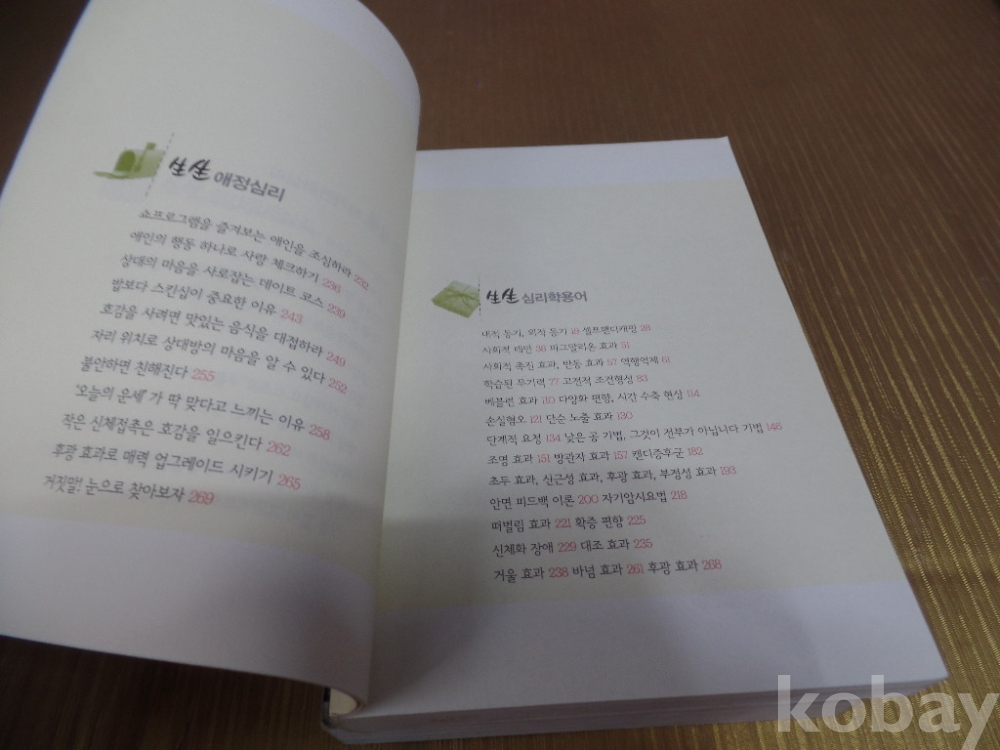 生生 애정심리
쇼프로그램을 즐겨보는 애인을 조심하라 232
애인의 행동 하나로 사랑 체크하기 236
상대의 마음을 사로잡는 데이트 코스 239
밥보다 스킨십이 중요한 이유 243
호감을 사려면 맛있는 음식을 대접하라 249
자리 위치로 상대방의 마음을 알 수 있다 252
불안하면 친해진다 255
'오늘의 운세'가 딱 맞다고 느끼는 이유 258
작은 신체접촉은 호감을 일으킨다 262
후광 효과로 매력 업그레이드 시키기 265
거짓말! 눈으로 찾아보자 269
生生 심리학용어
내적 동기, 외적 동기 19 셀프핸디캐핑 28
사회적 태만 38 피그말리온 효과 51
사회적 촉진 효과, 반동 효과 57 역행억제 61
학습된 무기력 77 고전적 조건형성 83
베블런 효과 110 다양화 편향, 시간 수축 현상 114
손실혐오 121 단순 노출 효과 130
단계적 요청 134 낮은 공 기법, 그것이 전부가 아닙니다 기법 146
조명 효과 151 방관자 효과 157 캔디증후군 182
초두 효과, 신근성 효과, 후광 효과, 부정성 효과 193
안면 피드백 이론 200 자기암시요법 218
떠벌림 효과 221 확증 편향 225
신체화 장애 229 대조 효과 235
거울 효과 238 바넘 효과 261 후광 효과 268
kobay